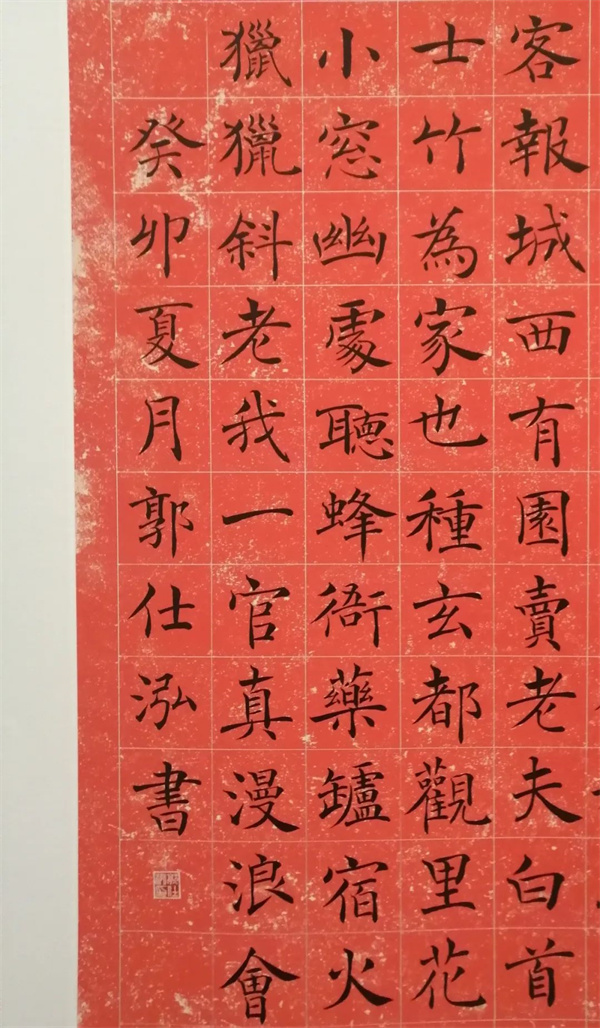 客報城西有園賣老夫白首
士竹為家也種玄都觀里花
小窓幽處聽蜂衙藥罏宿火
獵獵斜老我一官真漫浪會
癸卯夏月郭仕泓書